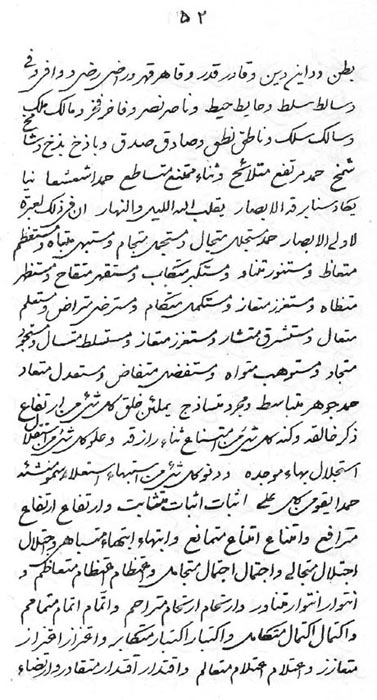 ۵۲
بطن و داین دین و قادر قدر و قاهر قهر و راضی رضی و وافر و فی
و سالط سلط و حایط حیط و ناصر نصر و فاخر فخر و مالک ملک
و سالک سلک و ناطق نطق و صادق صدق و باذخ بذخ و شامخ
شمخ حمد مرتفع متلائح و ثناء ممتنع متساطع حمد اشعشعا نیا
یکاد سنا برقه الابصار یقلب الله اللیل و النهار ان فی ذلک لعبرة
لاولی الابصار حمد مستجلل متجالل و مستجمل متجامل و مستبهی متباه و مستعظم
متعاظم و مستنور متناور و مستکبر متکابر و مستفتح متفاتح و مستظهر
متظاهر و مستعزز متعازز و مستکمل متکامل و مسترضی متراض و مستعلم
متعالم و مستشرق متشارق و مستعزز متعازز و مستسلط متسالط و مستجود
متجاود و مستوهب متواهب و مستفضی متفاض و مستعدل متعادل
حمد جوهر متباسط و مجرد متساذج یملئن خلق کل شئ من ارتفاع
ذکر خالقه و کند کل شئ من امتناع ثناء رازقه و علو کل شئ من
استجلال بهاء موحده و دنو کل شئ من استبهاء استعلاء سمو منشئه
حمد القومی کل علی اثبات اثبات متثابت و ارتفاع ارتفاع
مترافع و امتناع امتناع متمانع و ابتهاء ابتهاء متباهی و اجتلال
اجتلال متجالل و اجتمال اجتمال متجامل و اعتظام اعتظام متعاظم و
انتوار انتوار متناور و ارتحام ارتحام متراحم و اتمام اتمام متمامم
و اکتمال اکتمال متکامل و اکتبار اکتبار متکابر و اعتزاز اعتزاز
متعازز و اعتلام اعتلام متعالم و اقتدار اقتدار متقادر و ارتضاء